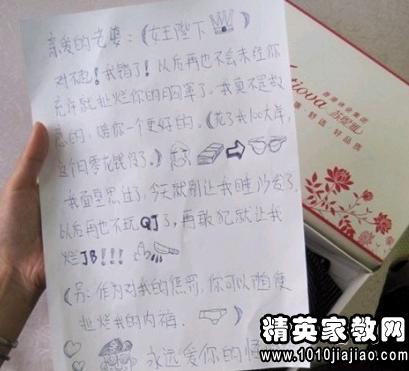 亲爱的老婆：(女王陛下)
对不起！我错了！以后再也不会未经你
允许就扯烂你的胸罩了，我真不是故
意的，赔你一个更好的。(花了我100大洋，
这个月零花钱没了。)
我面壁思过了，今天就别让我睡沙发了，
以后再也不玩QJ了，再敢犯就让我
烂JB!!!
(另：作为对我的惩罚，你可以随便
扯烂我的内裤。
永远爱你的
舒适 好品质
精英家教网
www.1010jiajiao.com